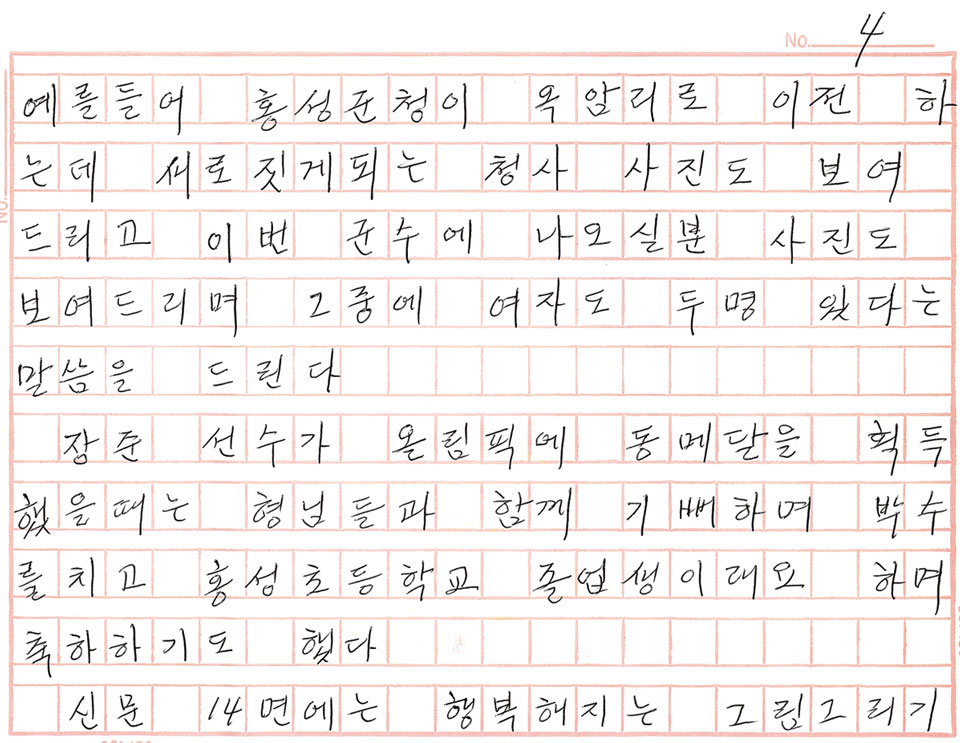 No. 4
예를들어 홍성군청이 옥암리로 이전 하
는데 새로짓게되는 청사 사진도 보여
드리고 이번 군수에 나오실분 사진도
보여드리며 그중에 여자도 두명 있다는
말씀을 드린다
장준 선수가 올림픽에 동메달을 획득
했을때는 형님들과 함께 기뻐하며 박수
를치고 홍성초등학교 졸업생이래요 하며
축하하기도 했다
신문 14면에는 행복해지는 그림그리기
NO.